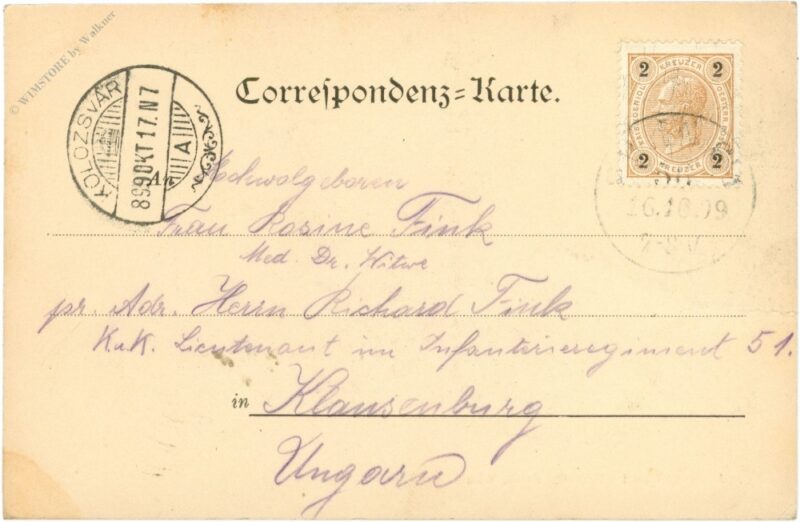 © WIMSTORE by Walkner
Correspondenz=Karte.
2 KREUZER 2
2 KREUZER 2
KOLOZSVÁR
899 OKT 17. N 7
A
16.10.99
An Hochwolgeboren
Frau Rosine Fink
Med. Dr. Witwe
pr. Adr. Herrn Richard Fink
K.u.K. Lieutenant im Infanterieregiment 51.
in Klausenburg
Ungarn